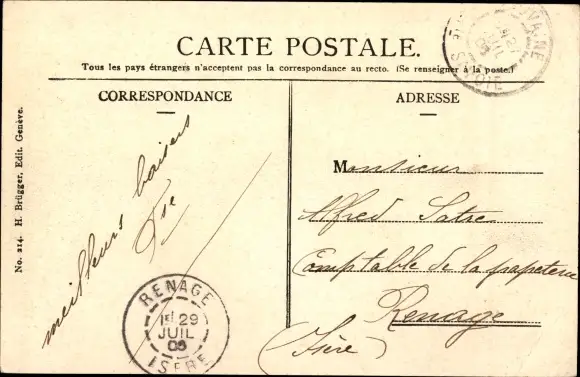 CARTE POSTALE.
Tous les pays étrangers n'acceptent pas la correspondance au recto. (Se renseigner à la poste.)
CORRESPONDANCE
ADRESSE
No. 214. H. Brügger, Edit. Genève.
meilleurs baisers
Monsieur
Alfred Satre
Comptable de la papeterie
Renage
(Isère)
RENAGE
1E 29
JUIL
05
ISERE